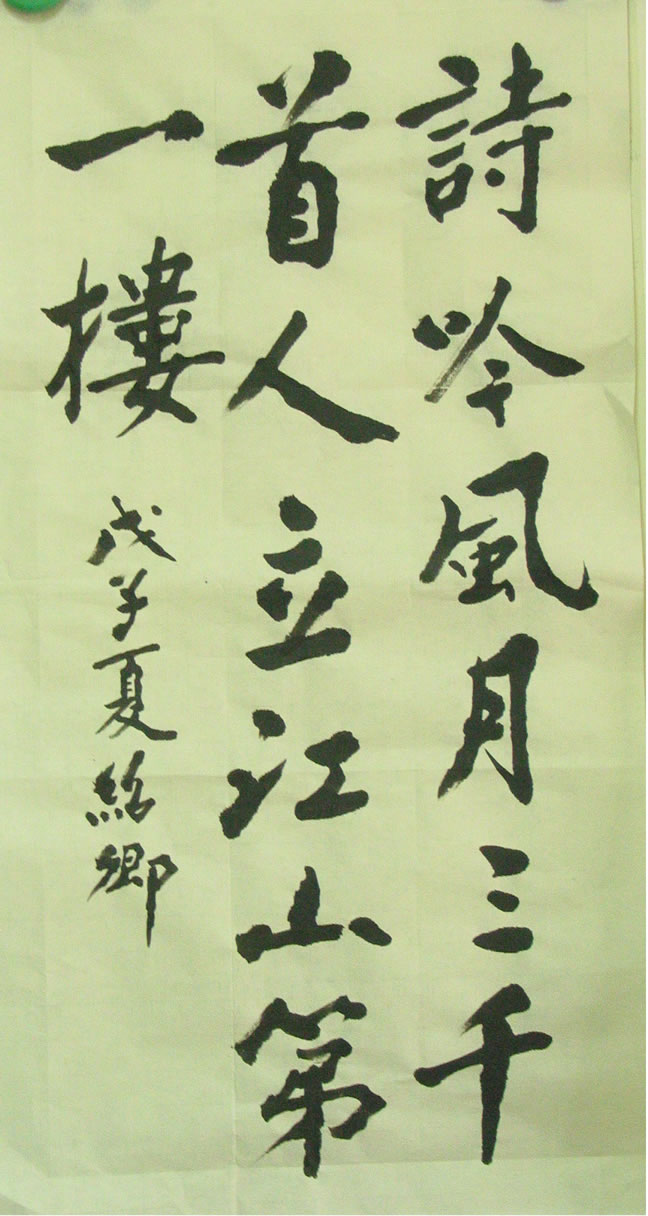 詩吟風月三千
首人立江山第
一樓
戊子夏紹卿